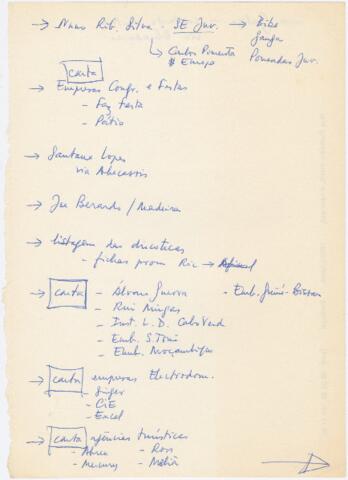 → Nuno Rib. Silva SE Juv. → Biba
Ganga
↳ Carlos Pimenta Pomadas Juv.
Europa
carta
→ Empresas Conf. e Festas
- Faz festa
- Pátio
→ Santana Lopes
via Abecassis
→ Joe Berardo / Madeira
→ listagem das discotecas
- fichas prom Ric →
→ carta - Álvaro Guerra - Emb. Guiné-Bissau
- Rui Mingas
- Inst. L. D. Cabo Verde
- Emb. S. Tomé
- Emb. Moçambique
→ carta empresas Electrodom.
- Singer
- CiE
- Excel
→ carta agências turísticas
- Abreu - Ross
- Mercury - Meliá